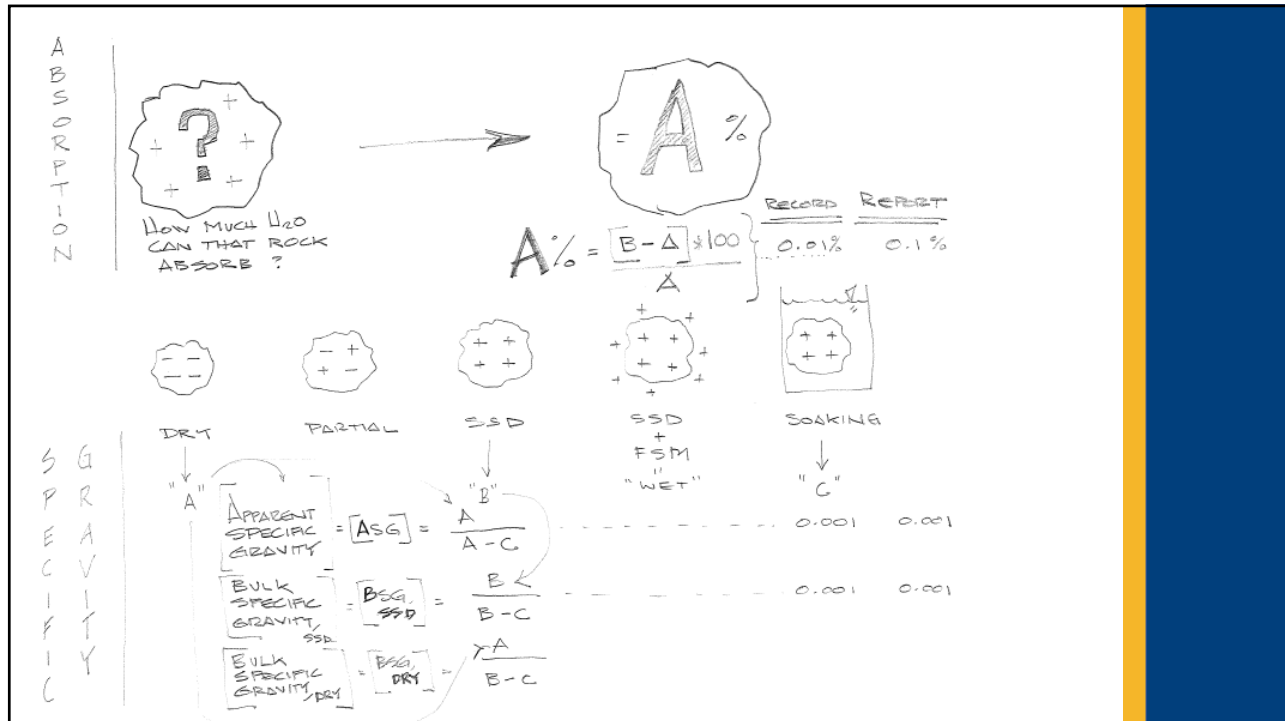 ABSORPTION
?
= A %
HOW MUCH H2O
CAN THAT ROCK
ABSORB ?
RECORD REPORT
A% = [B-A] * 100
A
0.01% 0.1%
DRY PARTIAL SSD SSD SOAKING
+
FSM
"
"WET"
"A" "B" "C"
SPECIFIC
GRAVITY
APPARENT
SPECIFIC
GRAVITY
= [ASG] =
A
A-C
0.001 0.001
BULK
SPECIFIC
GRAVITY/
SSD
= [BSG,
SSD] =
B
B-C
0.001 0.001
BULK
SPECIFIC
GRAVITY/DRY
= [BSG,
DRY] =
A
B-C